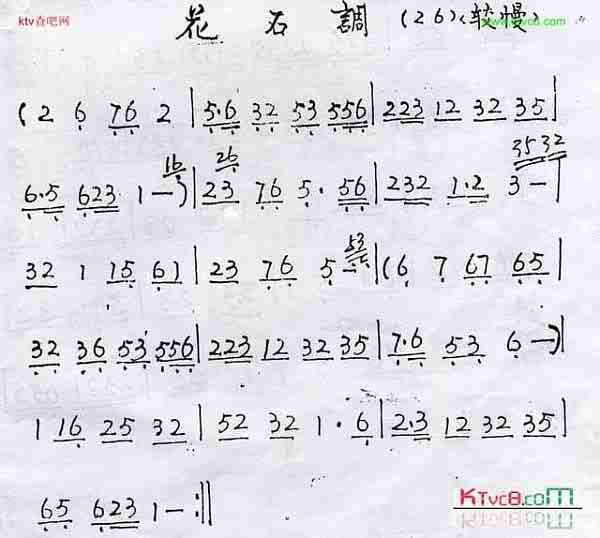 ktv查吧网
花石調 (26)〈较慢〉
(2 6 76 2 | 5·6 32 53 556 | 223 12 32 35 |
16 26 35 32
6·5 623 1 —) | 23 76 5· 56 | 232 1·2 3 — |
53
32 1 15 61 | 23 76 5 — | (6 7 67 65 |
32 36 53 556 | 223 12 32 35 | 7·6 53 6 —) |
1 16 25 32 | 52 32 1·6 | 2·3 12 32 35 |
65 623 1 — :||
KTvc8.com